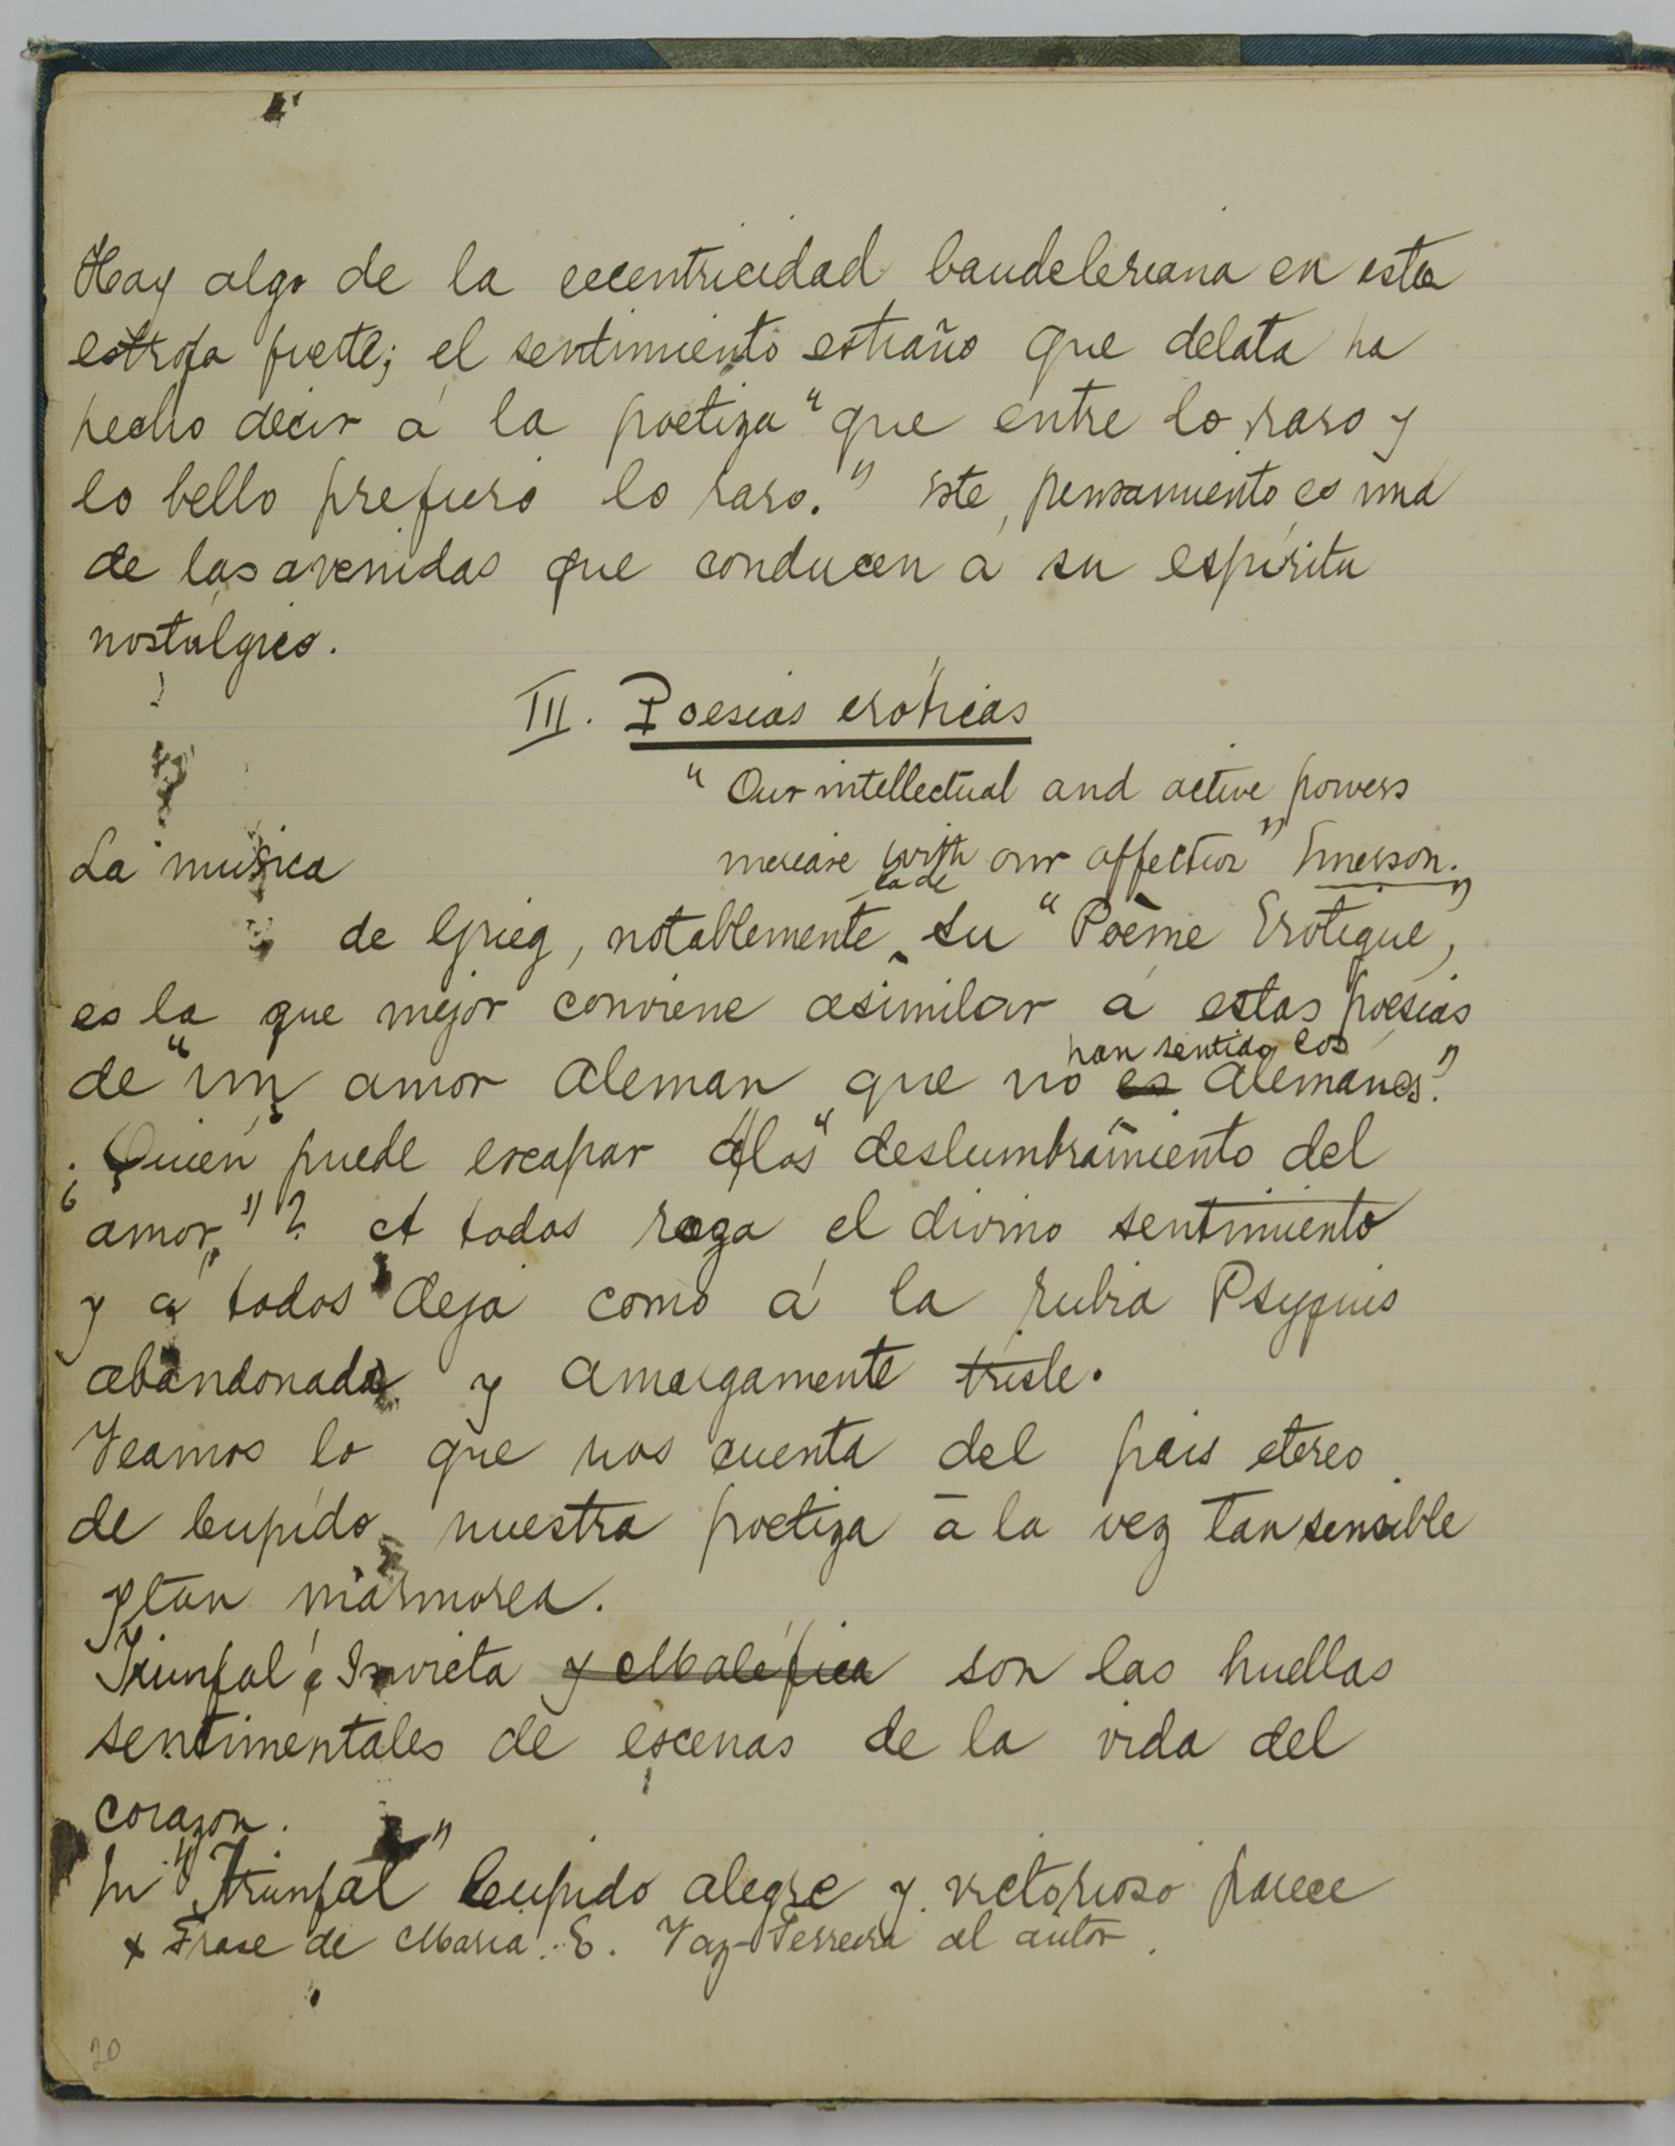 Hay algo de la excentricidad baudeleriana en esta
estrofa fuerte; el sentimiento estraño que delata ha
hecho decir á la poetiza "que entre lo raro y
lo bello prefiero lo raro." Este pensamiento es una
de las avenidas que conducen á su espíritu
nostálgico.
III. Poesias eróticas
"Our intellectual and active powers
increase with our affection" Emerson.
La musica
de Grieg, notablemente la de su "Poème Erotique",
es la que mejor conviene asimilar á estas poesias
de "un amor aleman que no es han sentido los alemanes."
¿Quién puede escapar á los "deslumbramiento del
amor"? A todos roza el divino sentimiento
y á todos deja como á la rubia Psyquis
abandonada y amargamente triste.
Veamos lo que nos cuenta del pais etereo
de Cupido, nuestra poetiza á la vez tan sensible
y tan marmorea.
Triunfal é Invicta y Maléfica son las huellas
sentimentales de escenas de la vida del
corazon.
En "Triunfal" Cupido alegre y victorioso parece
x Frase de Maria E. Vaz-Ferreira al autor.
20